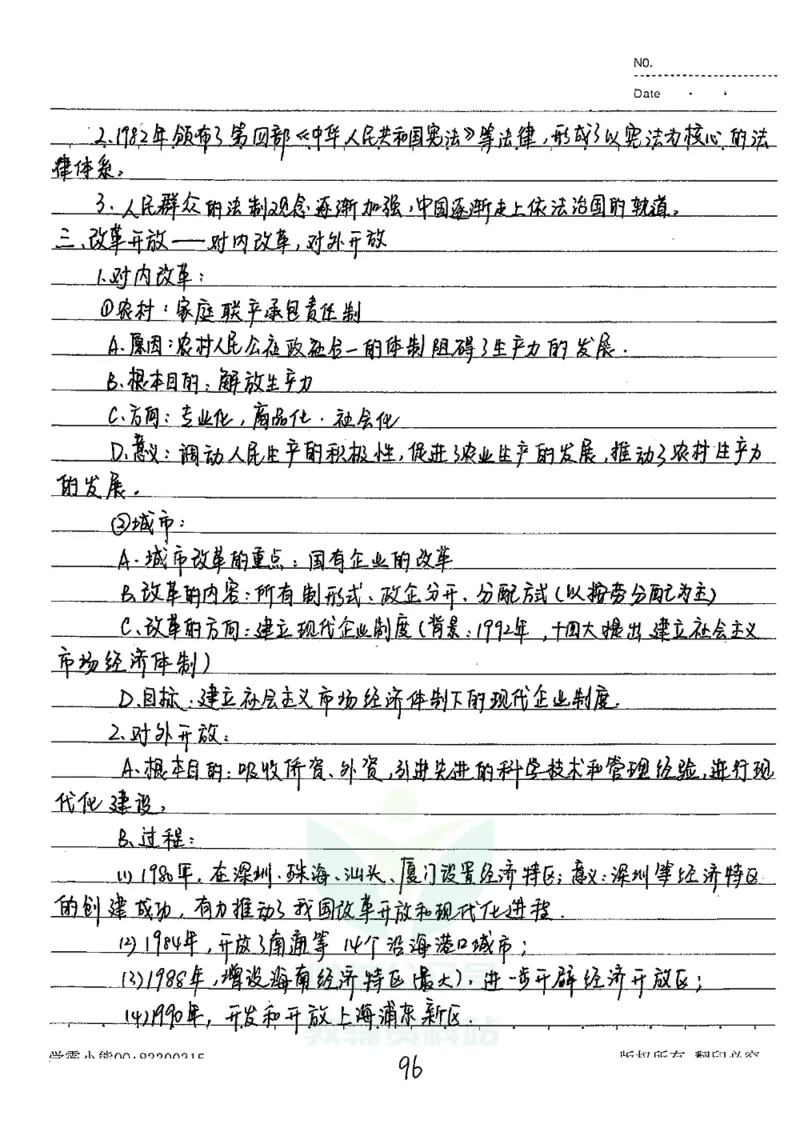 NO.
Date
2.1982年颁布了第四部《中华人民共和国宪法》等法律,形成了以宪法为核心的法
律体系。
3.人民群众的法制观念逐渐加强,中国逐渐走上依法治国的轨道。
三、改革开放——对内改革,对外开放
1.对内改革:
①农村:家庭联产承包责任制
A.原因:农村人民公社政社合一的体制阻碍了生产力的发展.
B.根本目的:解放生产力
C.方向:专业化,商品化.社会化
D.意义:调动人民生产的积极性,促进了农业生产的发展,推动了农村生产力
的发展。
②城市:
A.城市改革的重点:国有企业的改革
B.改革的内容:所有制形式、政企分开、分配方式(以按劳分配为主)
C.改革的方向:建立现代企业制度(背景:1992年,十四大提出建立社会主义
市场经济体制)
D.目标:建立社会主义市场经济体制下的现代企业制度.
2.对外开放:
A.根本目的:吸收侨资、外资,引进先进的科学技术和管理经验,进行现
代化建设。
B.过程:
(1)1980年,在深圳、珠海、汕头、厦门设置经济特区;意义:深圳等经济特区
的创建成功,有力推动了我国改革开放和现代化进程.
(2)1984年,开放了南通等14个沿海港口城市;
(3)1988年,增设海南经济特区(最大),进一步开辟经济开放区;
(4)1990年,开发和开放上海浦东新区.
教辅资料站
学霸小熊QQ:83200215
版权所有 翻印必究
96